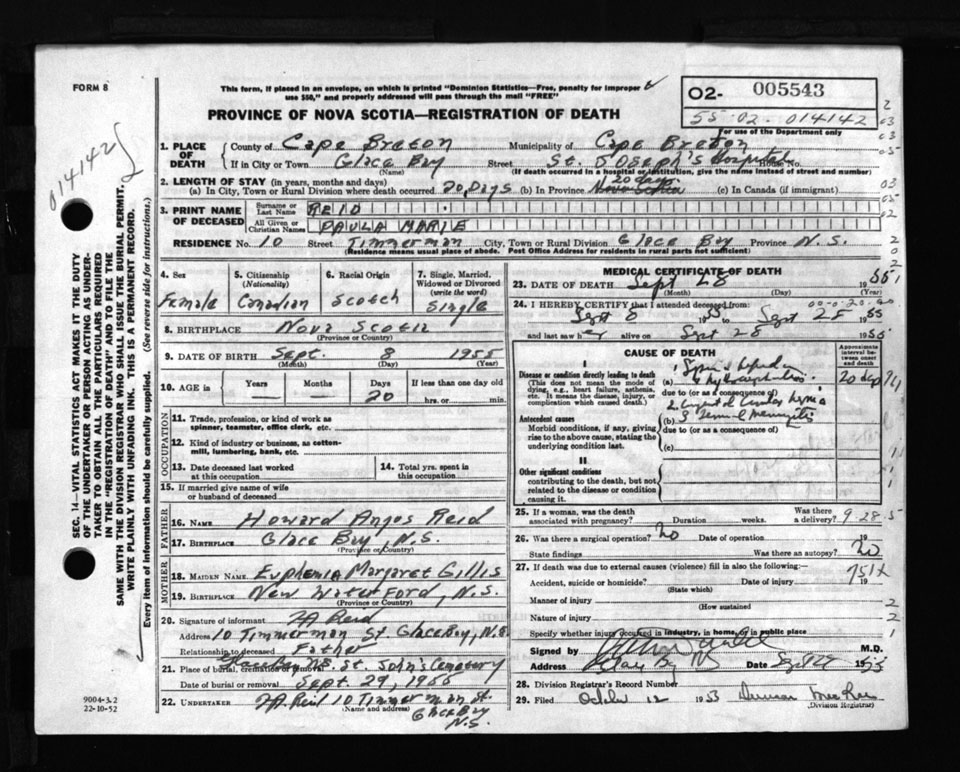 FORM 8
This form, if placed in an envelope, on which is printed "Dominion Statistics—Free, penalty for improper
use $50," and properly addressed will pass through the mail "FREE"
PROVINCE OF NOVA SCOTIA—REGISTRATION OF DEATH
O2- 005543
55-02-014142
For use of the Department only
014142
SEC. 14—VITAL STATISTICS ACT MAKES IT THE DUTY
OF THE UNDERTAKER OR PERSON ACTING AS UNDER-
TAKER TO OBTAIN ALL THE PARTICULARS REQUIRED
IN THE "REGISTRATION OF DEATH" AND TO FILE THE
SAME WITH THE DIVISION REGISTRAR WHO SHALL ISSUE THE BURIAL PERMIT.
WRITE PLAINLY WITH UNFADING INK. THIS IS A PERMANENT RECORD.
Every item of information should be carefully supplied. (See reverse side for instructions.)
1. PLACE OF DEATH
County of Cape Breton Municipality of Cape Breton
If in City or Town Glace Bay Street St. Joseph's Hospital House No.
(Name) (If death occurred in a hospital or institution, give the name instead of street and number)
2. LENGTH OF STAY (in years, months and days)
(a) In City, Town or Rural Division where death occurred 20 Days (b) In Province 20 days (c) In Canada (if immigrant)
3. PRINT NAME OF DECEASED
Surname or Last Name REID
All Given or Christian Names PAULA MARIE
RESIDENCE No. 10 Street Timmerman City, Town or Rural Division Glace Bay Province N.S.
(Residence means usual place of abode. Post Office Address for residents in rural parts not sufficient)
4. Sex Female
5. Citizenship (Nationality) Canadian
6. Racial Origin Scotch
7. Single, Married, Widowed or Divorced (write the word) Single
8. BIRTHPLACE Nova Scotia
(Province or Country)
9. DATE OF BIRTH Sept. 8 1955
(Month) (Day) (Year)
10. AGE in Years Months Days 20 If less than one day old hrs. or min.
OCCUPATION
11. Trade, profession, or kind of work as
spinner, teamster, office clerk, etc.
12. Kind of industry or business, as cotton-
mill, lumbering, bank, etc.
13. Date deceased last worked
at this occupation
14. Total yrs. spent in
this occupation
15. If married give name of wife
or husband of deceased
FATHER
16. NAME Howard Angus Reid
17. BIRTHPLACE Glace Bay, N.S.
(Province or Country)
MOTHER
18. MAIDEN NAME Euphemia Margaret Gillis
19. BIRTHPLACE New Waterford, N.S.
(Province or Country)
20. Signature of informant HA Reid
Address 10 Timmerman St. Glace Bay, N.S.
Relationship to deceased Father
21. Place of burial, cremation or removal Glace Bay N.S. St. John's Cemetery
Date of burial or removal Sept. 29, 1955
22. UNDERTAKER HA. Reid 10 Timmerman St.
(Name and address) Glace Bay
N.S.
9004-3.2
22-10-52
MEDICAL CERTIFICATE OF DEATH
23. DATE OF DEATH Sept 28 1955
(Month) (Day) (Year)
24. I HEREBY CERTIFY that I attended deceased from:
Sept 8 1955 Sept 28 1955
and last saw her alive on Sept 28 1955
CAUSE OF DEATH
Approximate interval between onset and death
I
Disease or condition directly leading to death
(This does not mean the mode of dying, e.g., heart failure, asthenia, etc. It means the disease, injury, or complication which caused death.)
(a) 1. Spina Bifida
& Hydrocephalus
20 days
due to (or as a consequence of)
Antecedent causes
Morbid conditions, if any, giving rise to the above cause, stating the underlying condition last.
(b) 3 Meningitis
due to (or as a consequence of)
(c)
II
Other significant conditions
contributing to the death, but not related to the disease or condition causing it.
25. If a woman, was the death
associated with pregnancy? Duration weeks. Was there a delivery? 9-28-5
26. Was there a surgical operation? No Date of operation 19
State findings Was there an autopsy? No
27. If death was due to external causes (violence) fill in also the following:—
Accident, suicide or homicide? Date of injury 19
(State which)
751X
Manner of injury
(How sustained)
Nature of injury
Specify whether injury occurred in industry, in home, or in public place
Signed by M.D.
Address Glace Bay NS Date Sept 29 1955
28. Division Registrar's Record Number
29. Filed October 12 1953 Duncan
(Division Registrar)